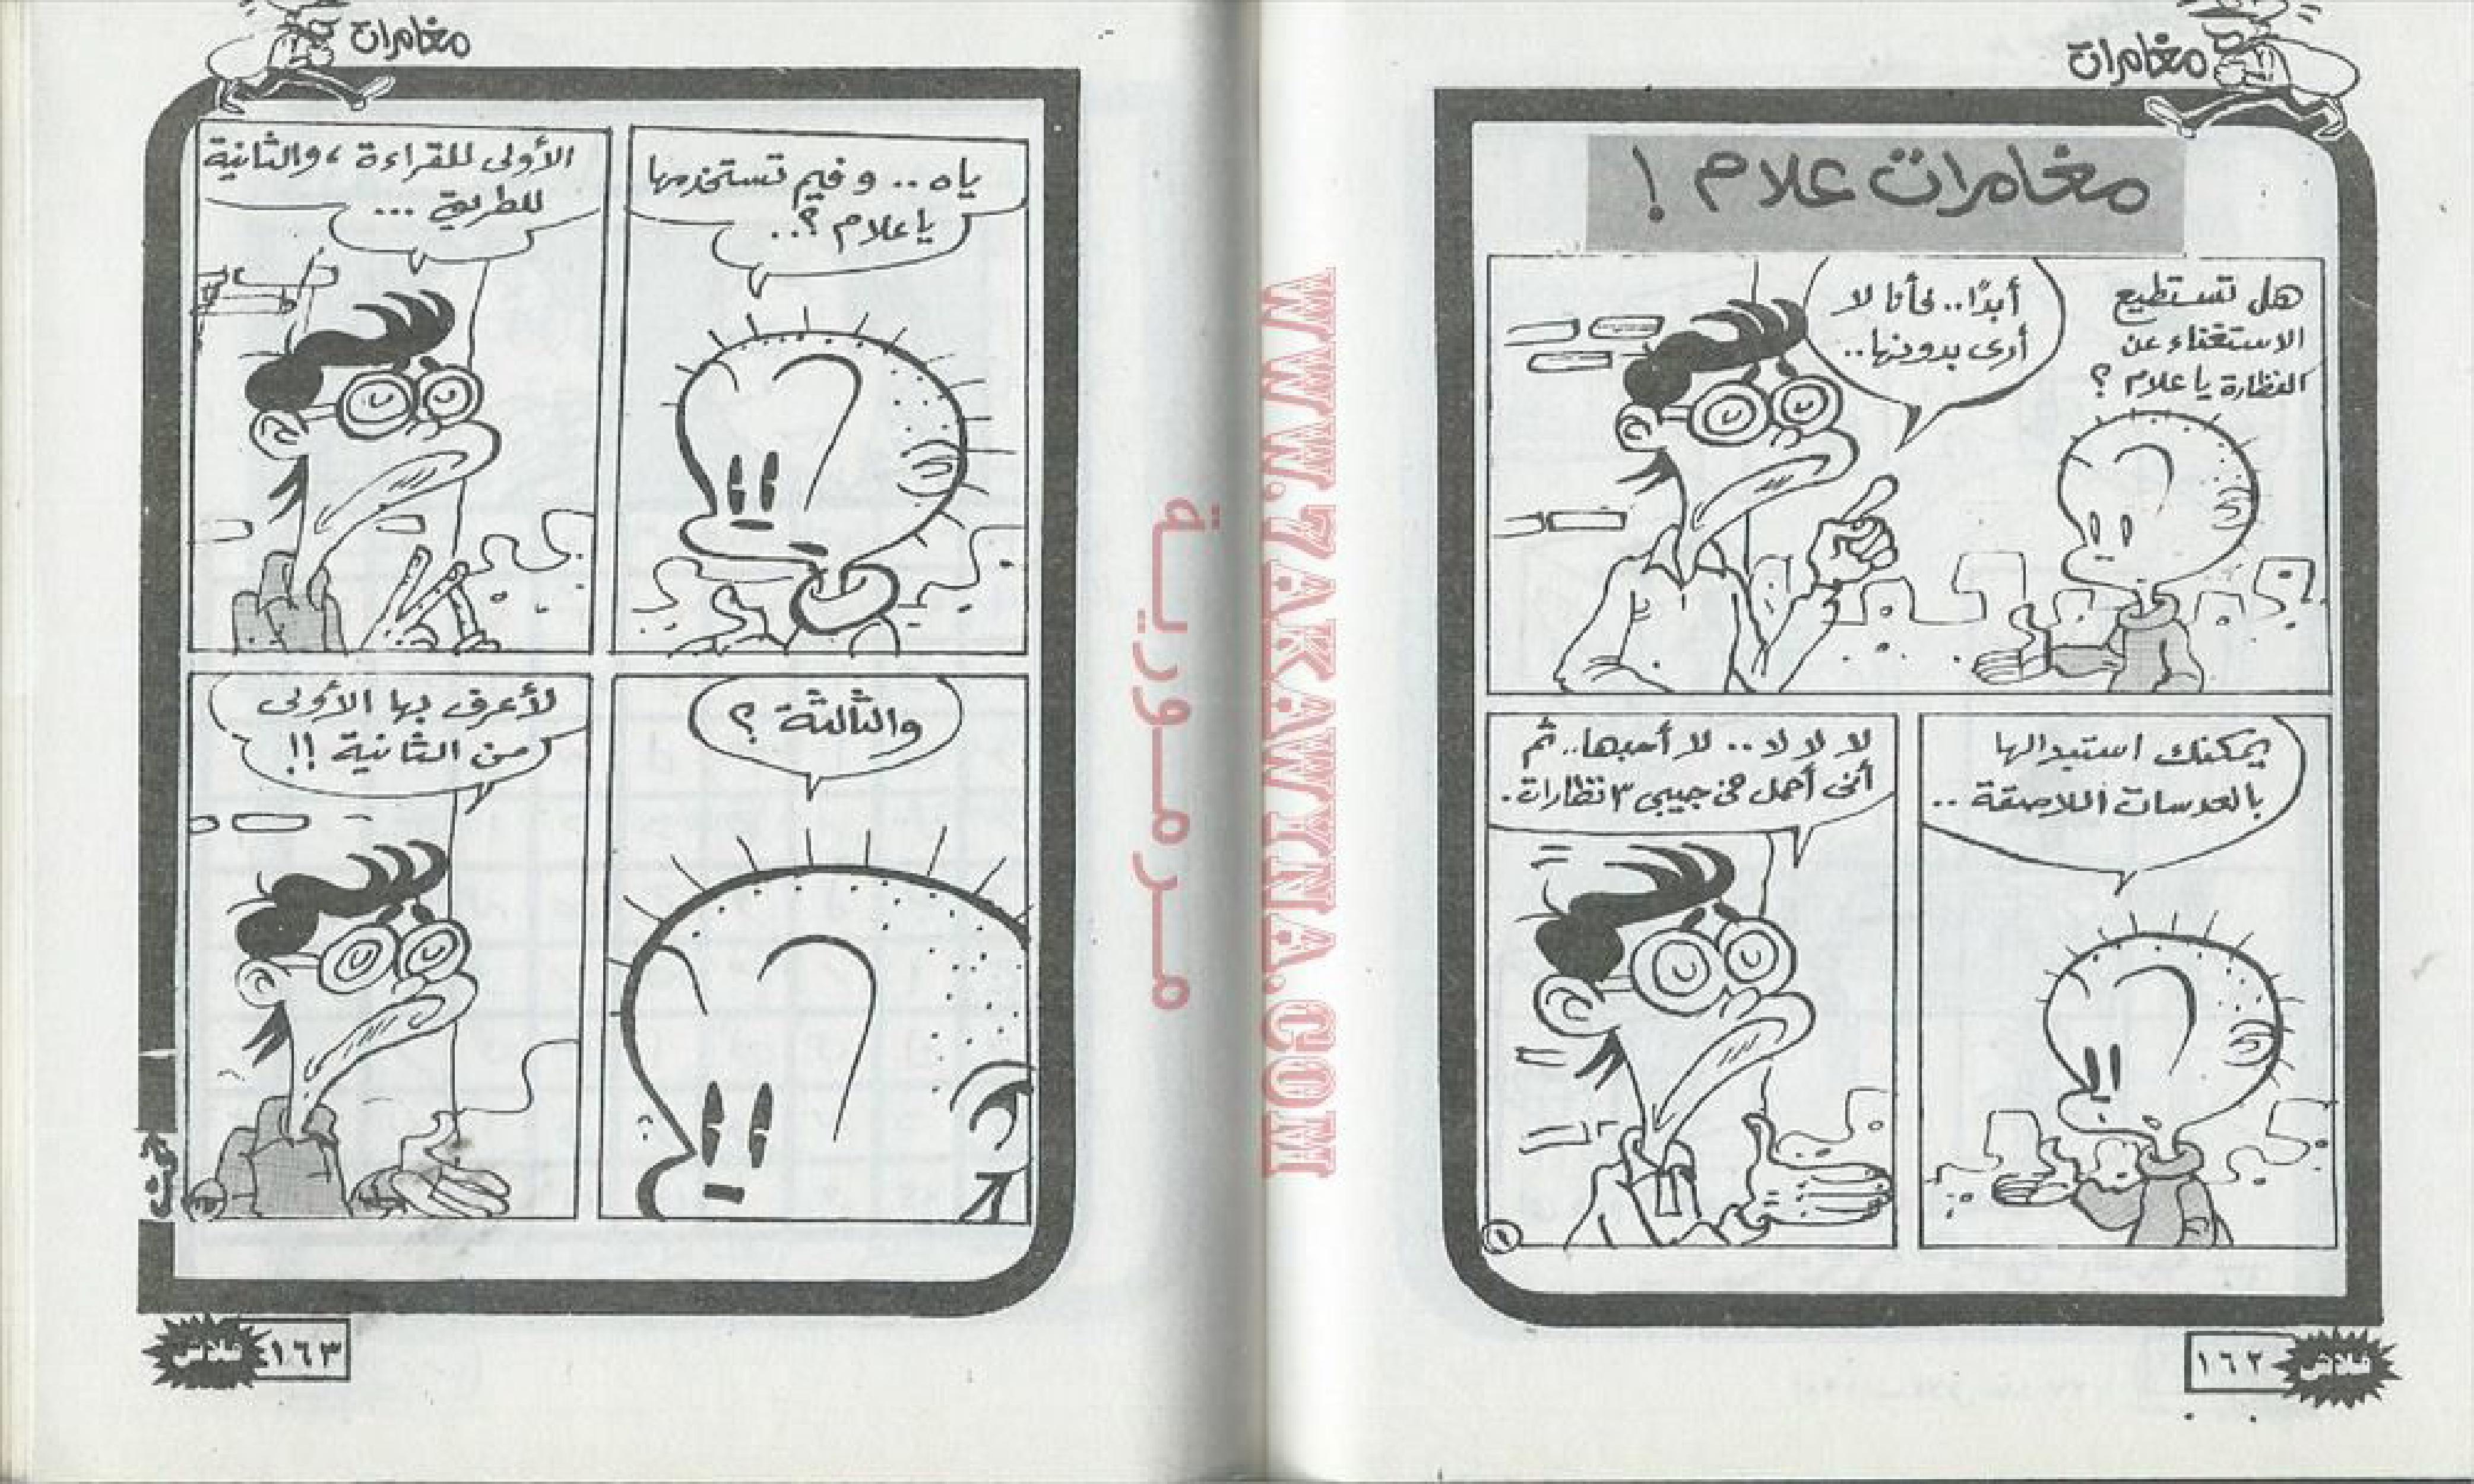 مغامرات
مغامرات علام !
هل تستطيع
الاستغناء عن
النظارة يا علام ؟
أبدًا.. فأنا لا
أرى بدونها..
يمكنك استبدالها
بالعدسات اللاصقة ..
لا لا لا .. لا أحبها.. ثم
أننى أحمل فى جيبى ٣ نظارات .
١٦٢
فلاش
WWW.7AKAWINA.COM
مرمورية
مغامرات
ياه .. و فيم تستخدمها
يا علام ؟..
الأولى للقراءة ، والثانية
للطريق ...
والثالثة ؟
لأعرف بها الأولى
من الثانية !!
١٦٣
فلاش